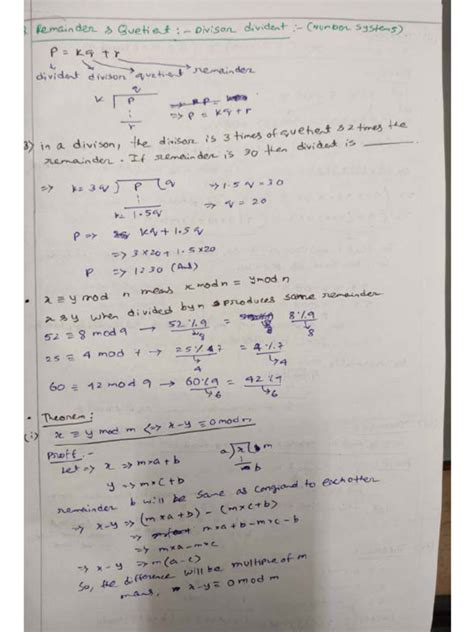 Remainder & Quetient :- Divison divident :- (Number Systems)
P = kq + r
divident divisor quetient remainder
q
k P
⇒ P = kq + r
r
3) in a divison, the divisor is 3 times of quetient & 2 times the
remainder. If remainder is 30 then divident is ____
⇒ k = 3q P q ⇒ 1.5q = 30
k = 1.5q ⇒ q = 20
P ⇒ kq + 1.5q
⇒ 3×20 + 1.5×20
P ⇒ 1230 (Ans)
• x ≡ y mod n means x mod n = y mod n
x & y when divided by n produces same remainder
52 ≡ 8 mod 9 → 52%9 = 8%9
8 8
25 ≡ 4 mod 7 → 25%7 = 4%7
4 4
60 ≡ 42 mod 9 → 60%9 = 42%9
6 6
• Theorem:
(i) x ≡ y mod m <=> x-y ≡ 0 mod m
Proff :-
Let ⇒ x ⇒ m×a+b a) x m
y ⇒ m×c+b b
remainder b will be same as congrand to eachother
⇒ x-y ⇒ (m×a+b) - (m×c+b)
⇒ m×a+b-m×c-b
⇒ m×a-m×c
⇒ x-y ⇒ m(a-c)
So, the difference will be multiple of m
means, x-y ≡ 0 mod m